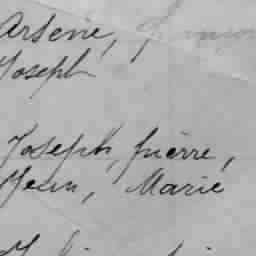 Arsène,
Joseph
Joseph, pierre,
Jean, Marie